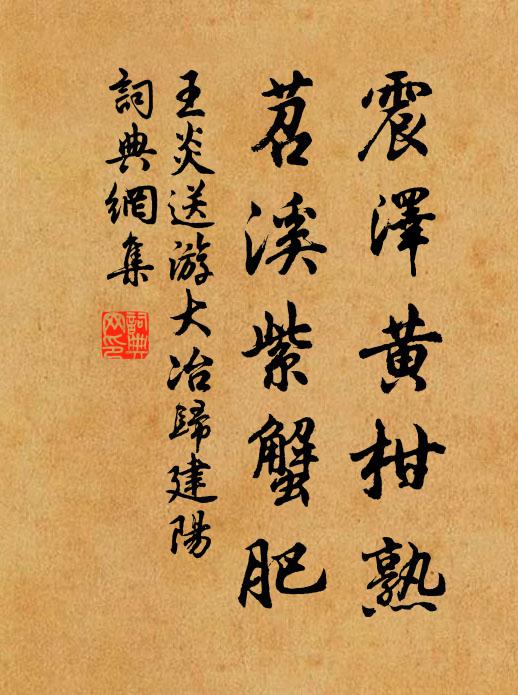 震澤黄柑熟
苕溪紫蟹肥
王炎送游大冶歸建陽
詞典網集
詞典
網印